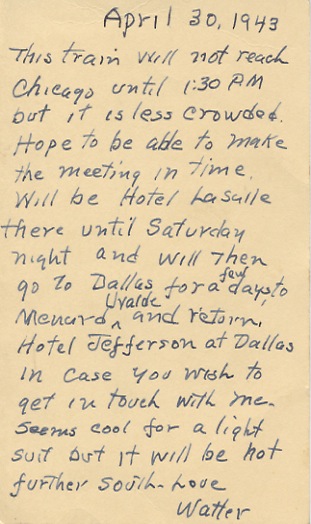 April 30, 1943
This train will not reach
Chicago until 1:30 PM
but it is less crowded.
Hope to be able to make
the meeting in time.
Will be Hotel LaSalle
there until Saturday
night and will then
go to Dallas for a few days, to
Menard, Uvalde and return.
Hotel Jefferson at Dallas
in case you wish to
get in touch with me.
Seems cool for a light
suit but it will be hot
further south - Love
Walter